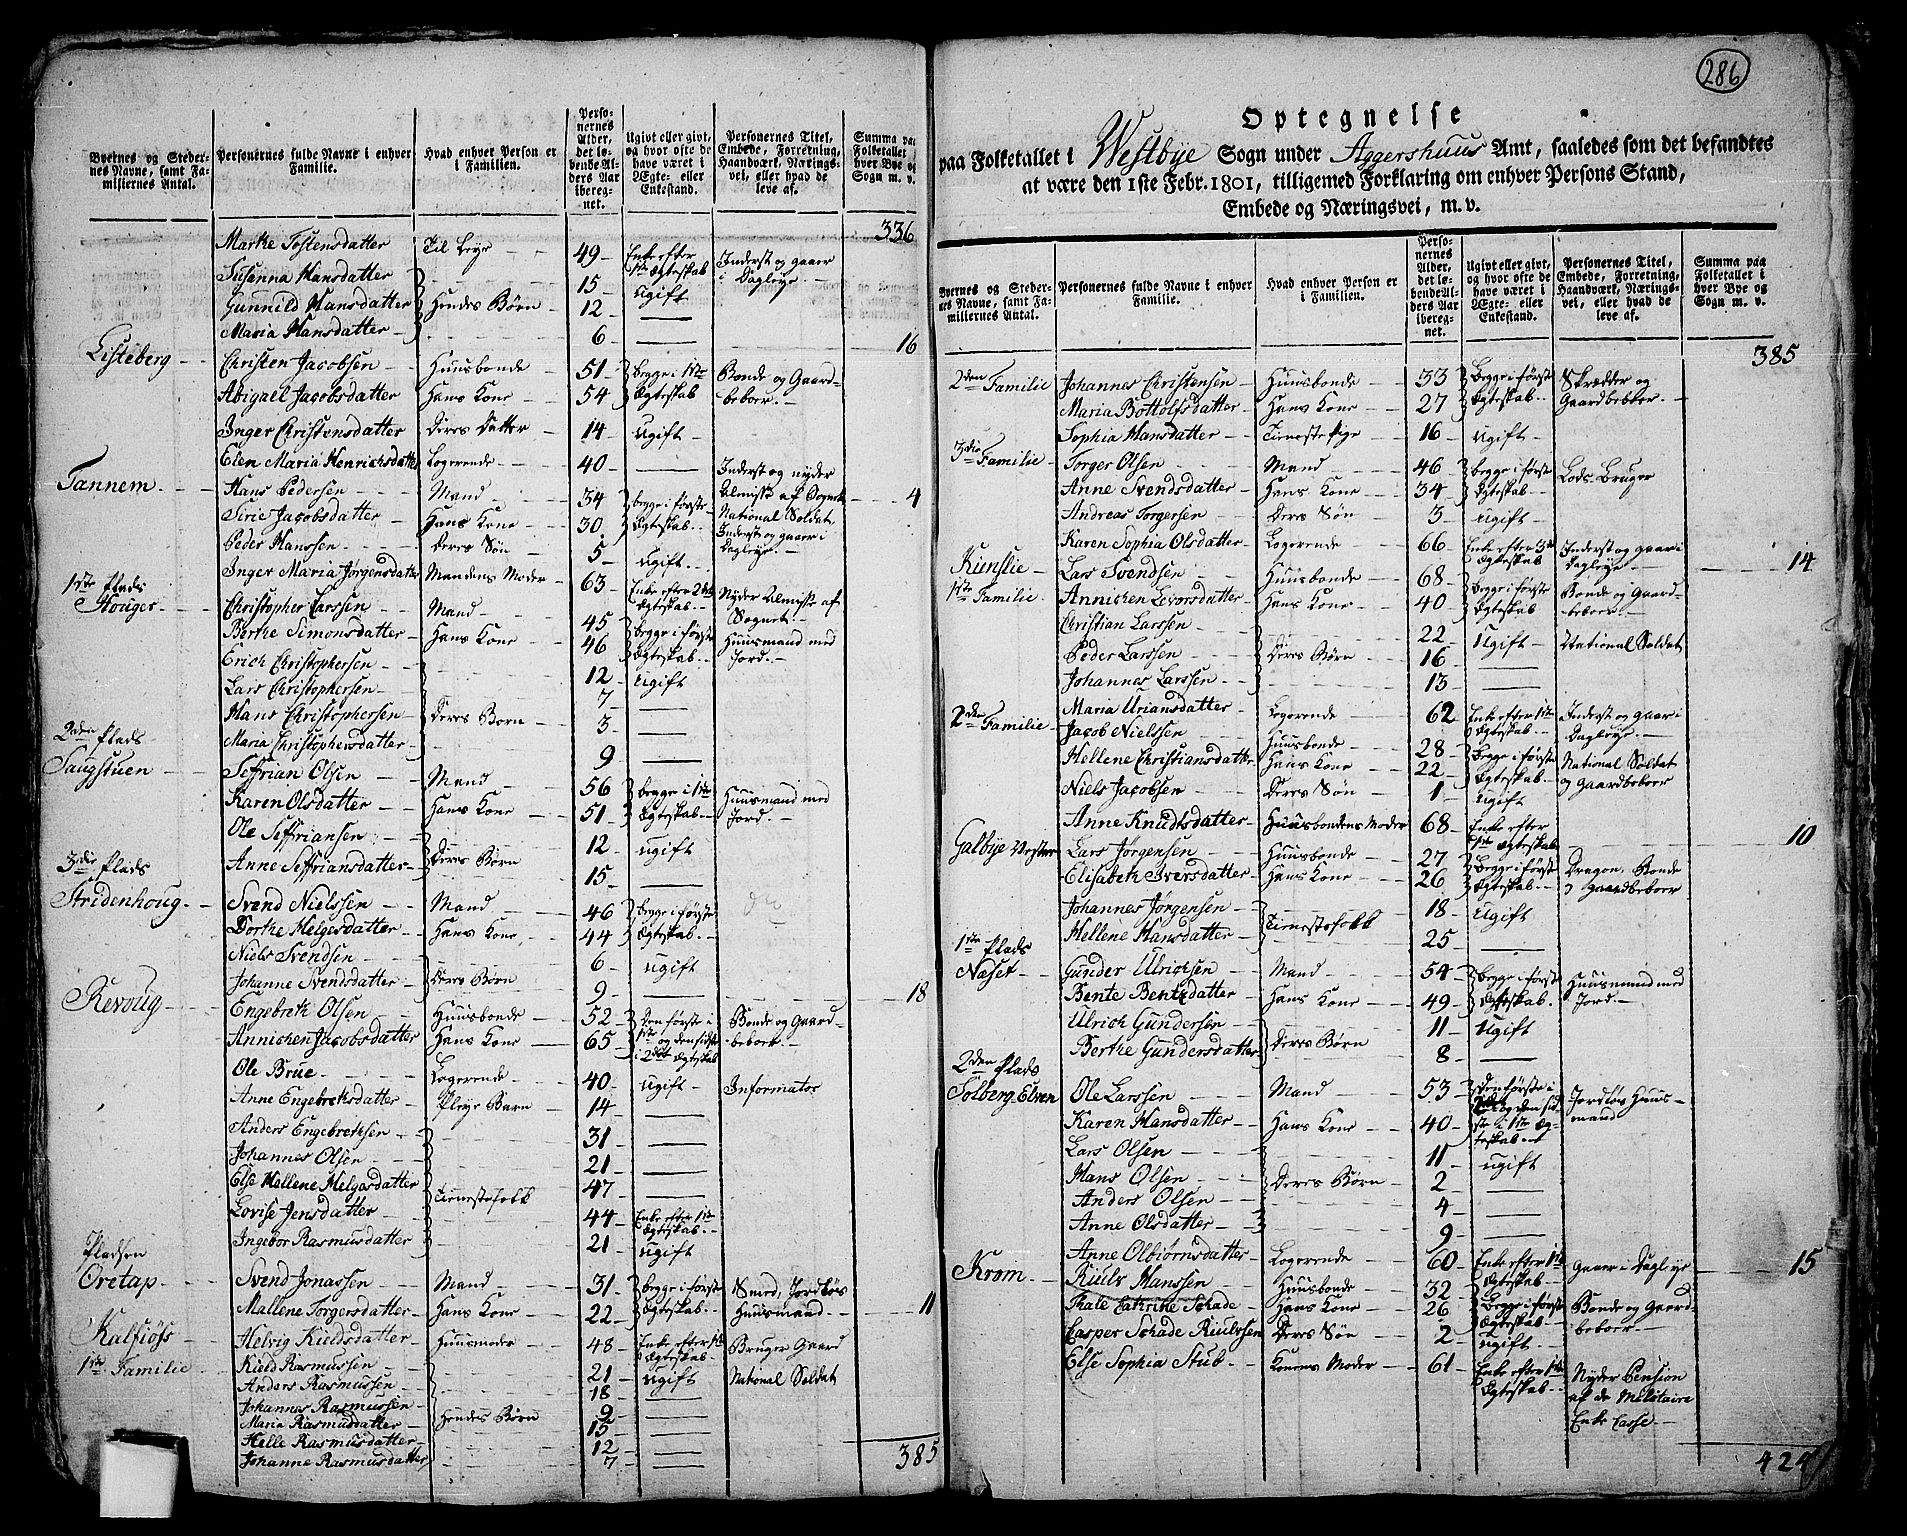 286
Byernes og Stedernes Navne, samt Familiernes Antal.
Personernes fulde Navne i enhver Familie.
Hvad enhver Person er i Familien.
Personernes Alder, det løbende Alders Aar iberegnet.
Ugivt eller givt, og hvor ofte de have været i Ægte- eller Enkestand.
Personernes Titel, Embede, Forretning, Haandværk, Næringsvei, eller hvad de leve af.
Summa paa Folketallet i hver Bye og Sogn m. v.
336
Marthe Tostensdatter Til Leye 49 Enke efter 1ste Ægteskab Inderst og gaaer i Dagleye
Susanna Hansdatter 15 ugift
Gunnild Hansdatter Hendes Börn 12
Maria Hansdatter 6 16
Listeberg Christen Jacobsen Huusbonde 51 begge i 1ste Ægteskab Bonde og Gaardbeboer
Abigaël Jacobsdatter Hans Kone 54
Inger Christensdatter Deres Datter 14 ugift
Elen Maria Henrichsdatter Logerende 40 Inderst og nyder Almisse af Sognet 4
Tannem Hans Pedersen Mand 34 begge i første Ægteskab National Soldat Inderst og gaaer i Dagleye
Sirie Jacobsdatter Hans Kone 30
Peder Hanssen Deres Sön 5 ugift
Inger Maria Jørgensdatter Mandens Moder 63 Enke efter 2det Ægteskab Nyder Almisse af Sognet
1ste Plads Houger Christopher Larssen Mand 45 begge i første Ægteskab Huusmand med Jord
Berthe Simonsdatter Hans Kone 46
Erich Christophersen 12 ugift
Lars Christophersen 7
Hans Christophersen Deres Börn 3
Maria Christophersdatter 9
2den Plads Saugstuen Seffrian Olsen Mand 56 begge i 1ste Ægteskab Huusmand med Jord
Karen Olsdatter Hans Kone 51
Ole Seffriansen Deres Börn 12 ugift
Anne Seffriansdatter 15
3die Plads Stridenhoug Svend Nielssen Mand 46 begge i første Ægteskab do
Dorthe Helgesdatter Hans Kone 44
Niels Svendsen 6 ugift
Johanne Svendsdatter Deres Börn 9 18
Revoug Engebreth Olsen Huusbonde 52 Den første i 1ste og den sidste i 2det Ægteskab Bonde og Gaardbeboer
Annichen Jacobsdatter Hans Kone 65
Ole Brue Logerende 40 ugift Informator
Anne Engebrethsdatter Pleye Barn 14
Anders Engebrethsen 31
Johannes Olsen 21
Else Hellene Helgesdatter Tienestefolk 47
Lovise Jensdatter 44 Enke efter 1ste Ægteskab
Ingebor Rasmusdatter 21 ugift
Pladsen Oretap Svend Jonassen Mand 31 begge i første Ægteskab Smed, Jordløs Huusmand
Mallene Torgersdatter Hans Kone 22 11
Kalfiöfs 1ste Familie Helvig Kieldsdatter Huusmoder 48 Enke efter 1ste Ægteskab Bruger Gaard
Kield Rasmussen 21 ugift National Soldat
Anders Rasmussen 18
Johannes Rasmussen 9
Maria Rasmusdatter Hendes Börn 15
Helle Rasmusdatter 12
Johanne Rasmusdatter 7
385
Optegnelse
paa Folketallet i Westbye Sogn under Aggershuus Amt, saaledes som det befandtes
at være den 1ste Febr. 1801, tilligemed Forklaring om enhver Persons Stand,
Embede og Næringsvei, m. v.
Byernes og Stedernes Navne, samt Familiernes Antal.
Personernes fulde Navne i enhver Familie.
Hvad enhver Person er i Familien.
Personernes Alder, det løbende Alders Aar iberegnet.
Ugivt eller givt, og hvor ofte de have været i Ægte- eller Enkestand.
Personernes Titel, Embede, Forretning, Haandværk, Næringsvei, eller hvad de leve af.
Summa paa Folketallet i hver Bye og Sogn m. v.
385
2den Familie Johannes Christensen Huusbonde 33 Begge i første Ægteskab Skrædder og Gaardbeboer
Maria Bottolfsdatter Hans Kone 27
Sophia Hansdatter Tieneste Pige 16 ugift
3die Familie Torger Olsen Mand 46 begge i første Ægteskab Lods Bruger
Anne Svendsdatter Hans Kone 34
Andreas Torgersen Deres Sön 3 ugift
Karen Sophia Olsdatter Logerende 66 Enke efter 3die Ægteskab Inderst og gaaer i Dagleye 14
Kunslie 1ste Familie Lars Svendsen Huusbonde 68 begge i første Ægteskab Bonde og Gaardbeboer
Annichen Levorsdatter Hans Kone 40
Christian Larssen 22 ugift National Soldat
Peder Larssen Deres Börn 16
Johannes Larssen 13
Maria Uriansdatter Logerende 62 Enke efter 1ste Ægteskab Inderst og gaaer i Dagleye
2den Familie Jacob Nielssen Huusbonde 28 Begge i første Ægteskab National Soldat og Gaardbeboer
Hellene Christiansdatter Hans Kone 22
Niels Jacobsen Deres Sön 1 ugift
Anne Knudtsdatter Huusbondens Moder 68 Enke efter 1ste Ægteskab 10
Galbye Vester Lars Jørgensen Huusbonde 27 Begge i første Ægteskab Dragon, Bonde og Gaardbeboer
Elisabeth Iversdatter Hans Kone 26
Johannes Jørgensen Tienestefolk 18 ugift
Hellene Hansdatter 25
1ste Plads Naset Gunder Ulrichsen Mand 54 begge i første Ægteskab Huusmand med Jord
Bente Bentzdatter Hans Kone 49
Ulrich Gundersen Deres Börn 11 ugift
Berthe Gundersdatter 8
2den Plads Solberg Elven Ole Larssen Mand 53 Den første i 2det og den sidste i 1ste Ægteskab Jordløs Huusmand
Karen Hansdatter Hans Kone 40
Lars Olsen 11 ugift
Hans Olsen Deres Börn 2
Anders Olsen 4
Anne Olsdatter 9
Anne Olbiörnsdatter Logerende 60 Enke efter 1ste Ægteskab Gaaer i Dagleye 15
Krom Riulv Hanssen Huusbonde 32 Begge i første Ægteskab Bonde og Gaardbeboer
Thale Cathrine Schade Hans Kone 26
Casper Schade Riulvsen Deres Sön 2 ugift
Else Sophia Stub Konens Moder 61 Enke efter 1ste Ægteskab Nyder Pension af de Militaire Enke Casse
424